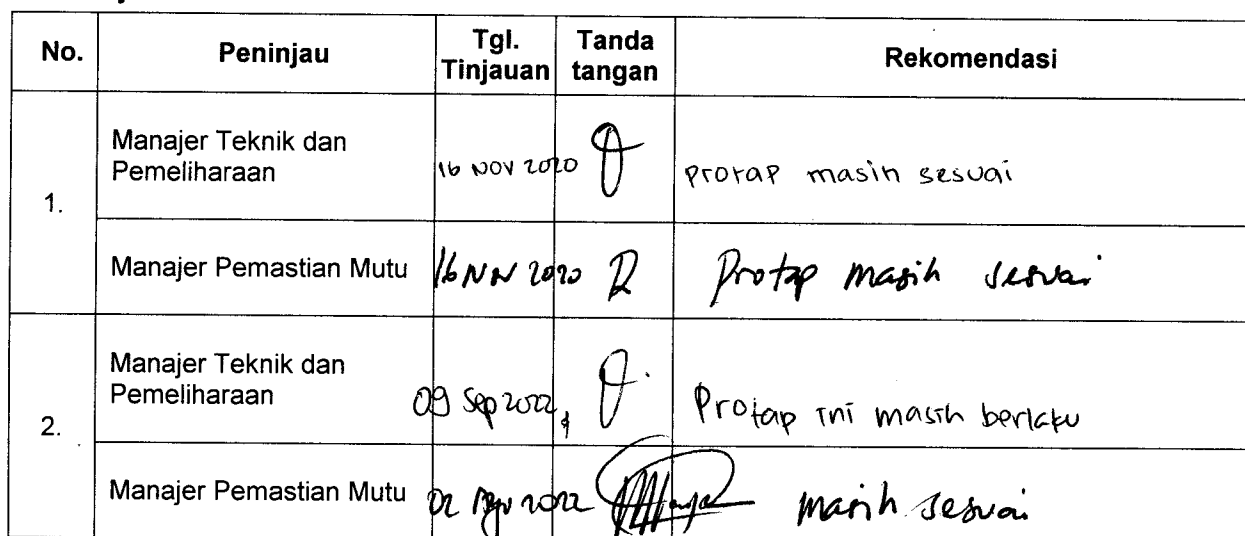 No. Peninjau Tgl. Tinjauan Tanda tangan Rekomendasi
1.
Manajer Teknik dan
Pemeliharaan
16 NOV 2020
protap masih sesuai
Manajer Pemastian Mutu 16 Nov 2020 Protap masih sesuai
2.
Manajer Teknik dan
Pemeliharaan
09 Sep 2022
Protap ini masih berlaku
Manajer Pemastian Mutu 02 2022 masih sesuai